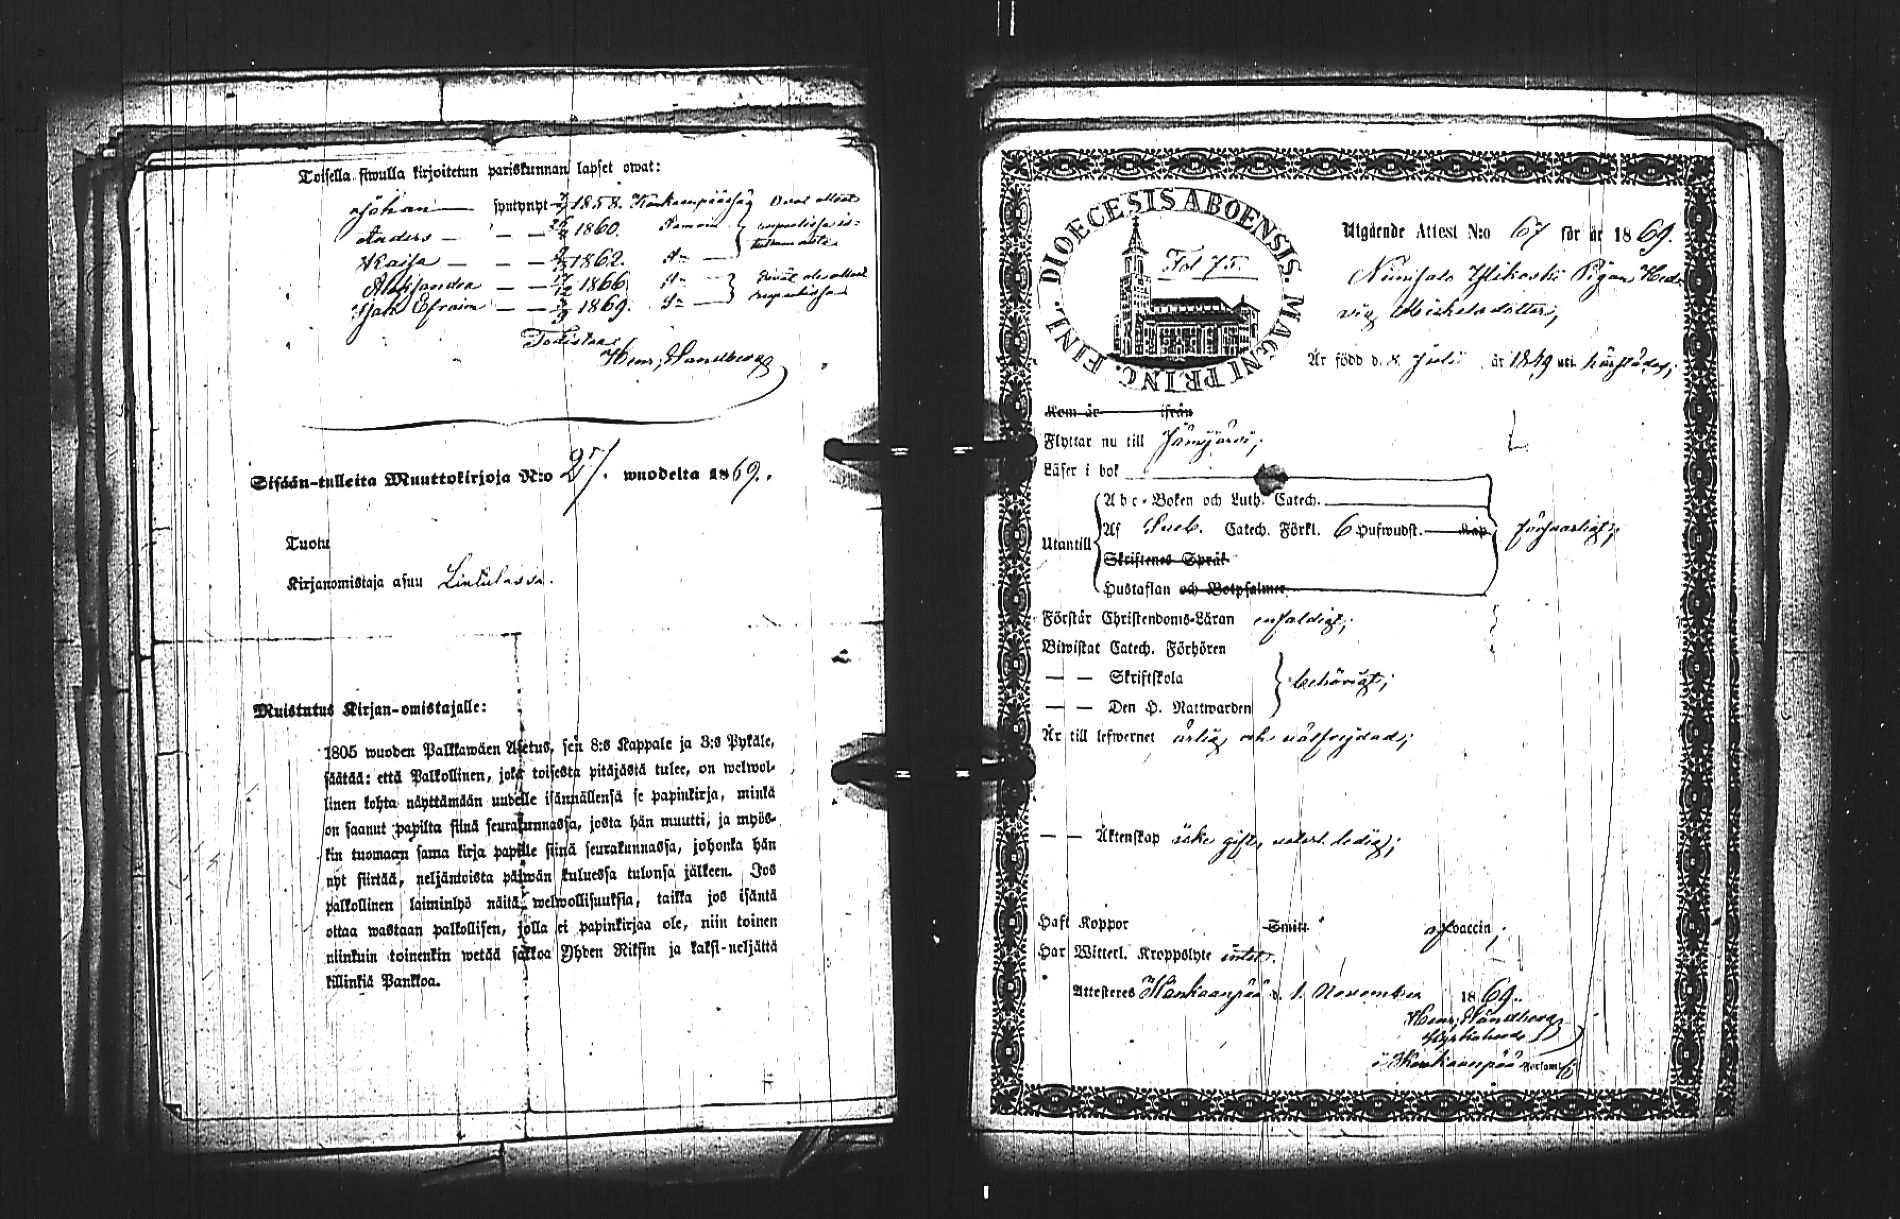 Toisella siwulla kirjoitetun pariskunnan lapset owat:
Johan — syntynyt 1858. Kankaanpäässä
Anders — — — 1860. Samoin
Kaisa — — — 1862. d:o —
Aleksandra — — 1866 d:o —
Isak Efraim — — 1869. d:o —
Todistaa
Henr. Sandberg
Sisään-tulleita Muuttokirjoja N:o 27. wuodelta 1869.
Tuotu
Kirjanomistaja asuu
Muistutus Kirjan-omistajalle:
1805 wuoden Palkkawäen Asetus, sen 8:s Kappale ja 3:s Pykäle,
säätää: että Palkollinen, joka toisesta pitäjästä tulee, on welwol-
linen kohta näyttämään uudelle isännällensä se papinkirja, minkä
on saanut papilta siinä seurakunnassa, josta hän muutti, ja myös-
kin tuomaan sama kirja papille siinä seurakunnassa, johonka hän
nyt siirtää, neljäntoista päiwän kuluessa tulonsa jälkeen. Jos
palkollinen laiminlyö näitä welwollisuuksia, taikka jos isäntä
ottaa wastaan palkollisen, jolla ei papinkirjaa ole, niin toinen
niinkuin toinenkin wetää sakkoa Yhden Riksin ja kaksi-neljättä
killinkiä Pankkoa.
DIOECESIS ABOENSIS. MAGNI PRINC. FINL.
Fol 75.
Utgående Attest N:o 67 för år 1869.
Niinisalo Ylikoski Pigan Hed-
vig Michelsdotter,
Är född d. 8 Juli år 1849 uti härstädes;
Kom år ifrån
Flyttar nu till Jämijärvi;
Läser i bok
Abc-Boken och Luth. Catech.
Utantill
Af Sveb. Catech. Förkl. 6 Hufwudst. Kap.
försvarligt;
Skriftenes Språk
Hustaflan och Botpsalmer
Förstår Christendoms-Läran enfaldigt;
Biwistat Catech. Förhören
— — Skriftskola behörigt;
— — Den H. Nattwarden
Är till lefwernet ärlig och välfrejdad;
— — Äktenskap icke gift, utan ledig;
Haft Koppor Smitt af vaccin;
Har Witterl. Kroppslyte intet.
Attesteres Kankaanpää d. 1. November 1869.
Henr. Sandberg
Kyrkoherde
i Kankaanpää Församl.